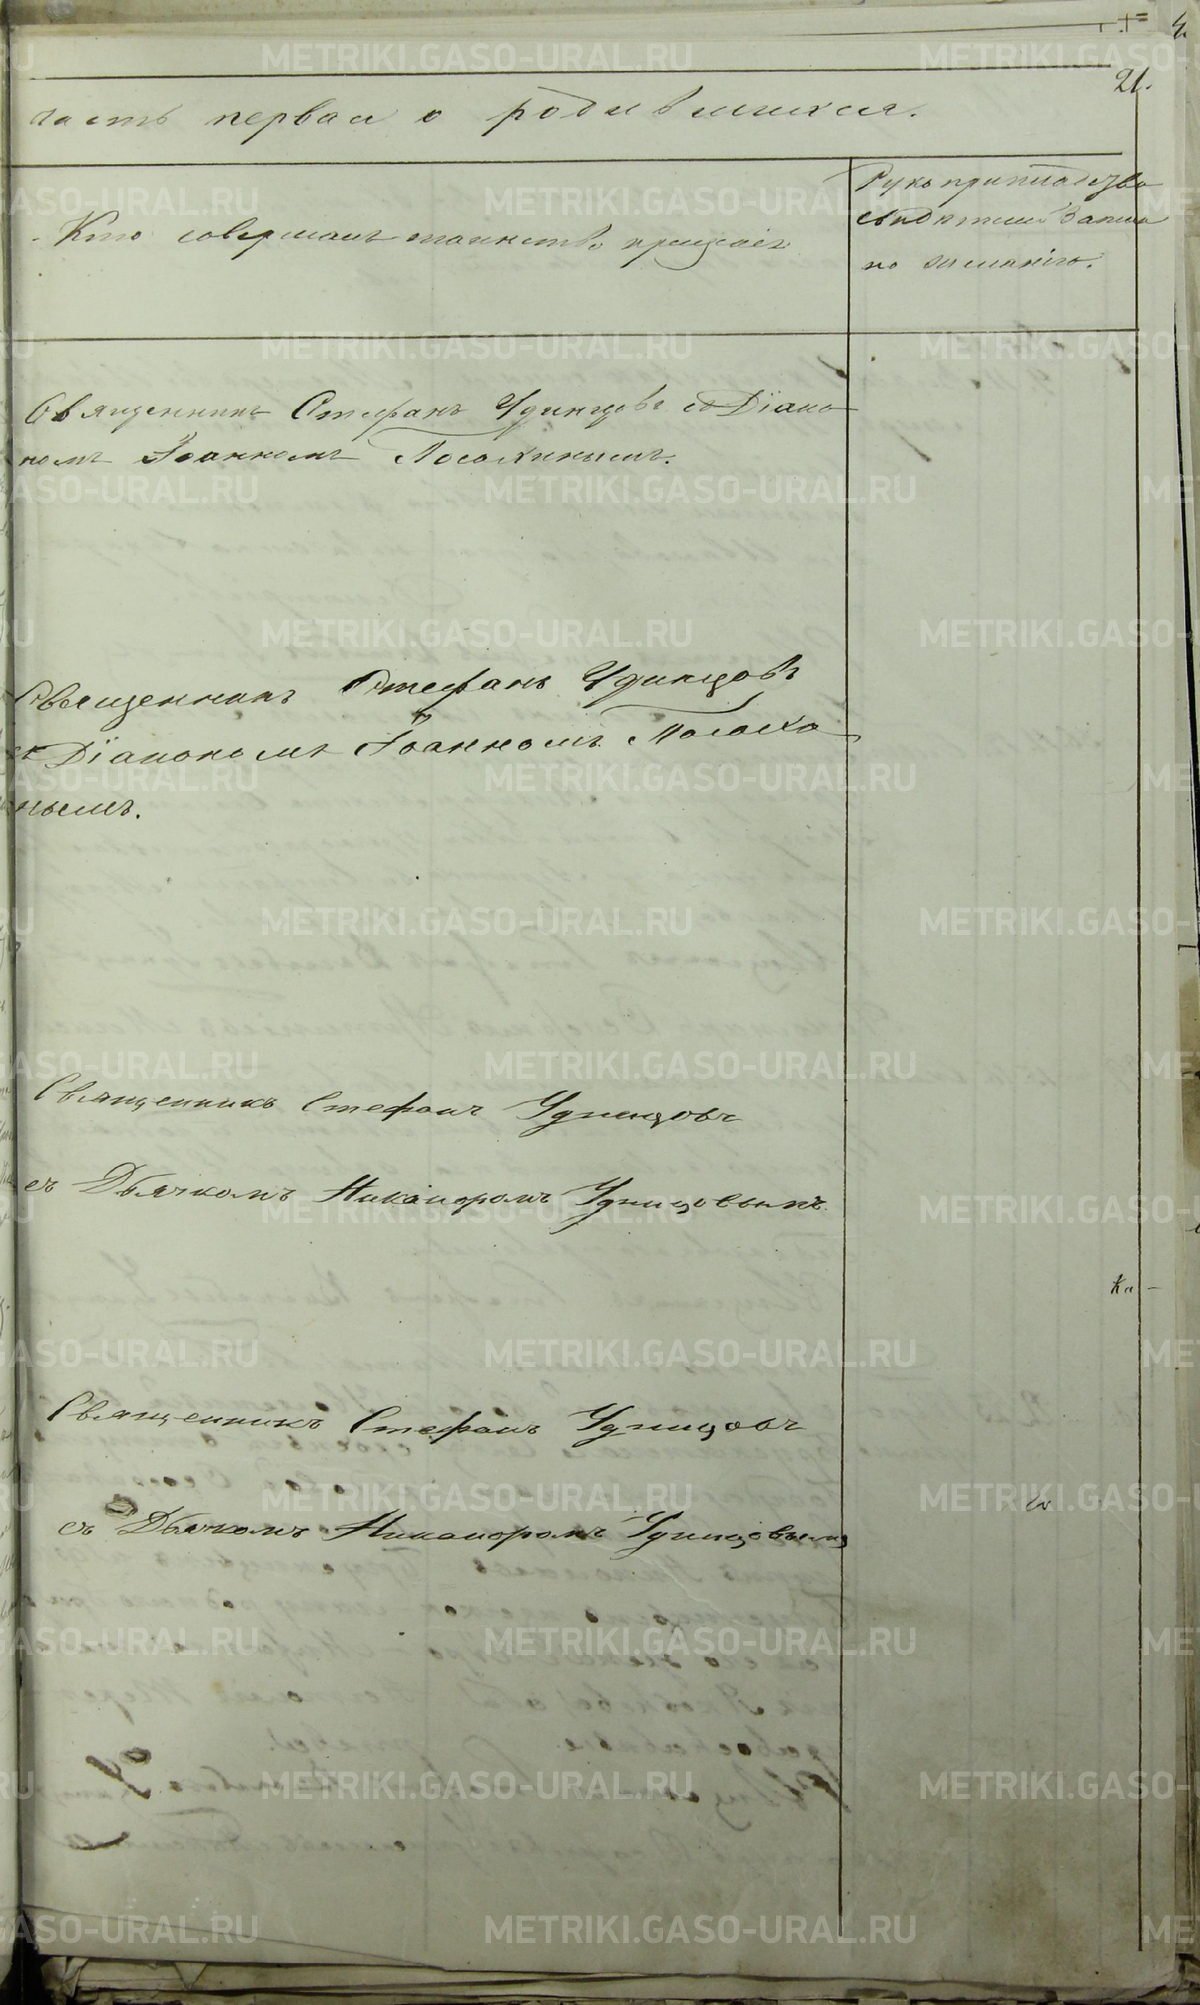 21.
часть первая о родившихся.
Кто совершалъ таинство крещенія
Рукоприкладство
свидѣтелей записи
по желанію.
Священникъ Стефанъ Удинцовъ съ Діако
номъ Іоанномъ Посохинымъ.
Священникъ Стефанъ Удинцовъ
съ Діакономъ Іоанномъ Посохи
нымъ.
Священникъ Стефанъ Удинцовъ
съ Дьячкомъ Никаноромъ Удинцовымъ
Священникъ Стефанъ Удинцовъ
съ Дьячкомъ Никаноромъ Удинцовымъ
METRIKI.GASO-URAL.RU